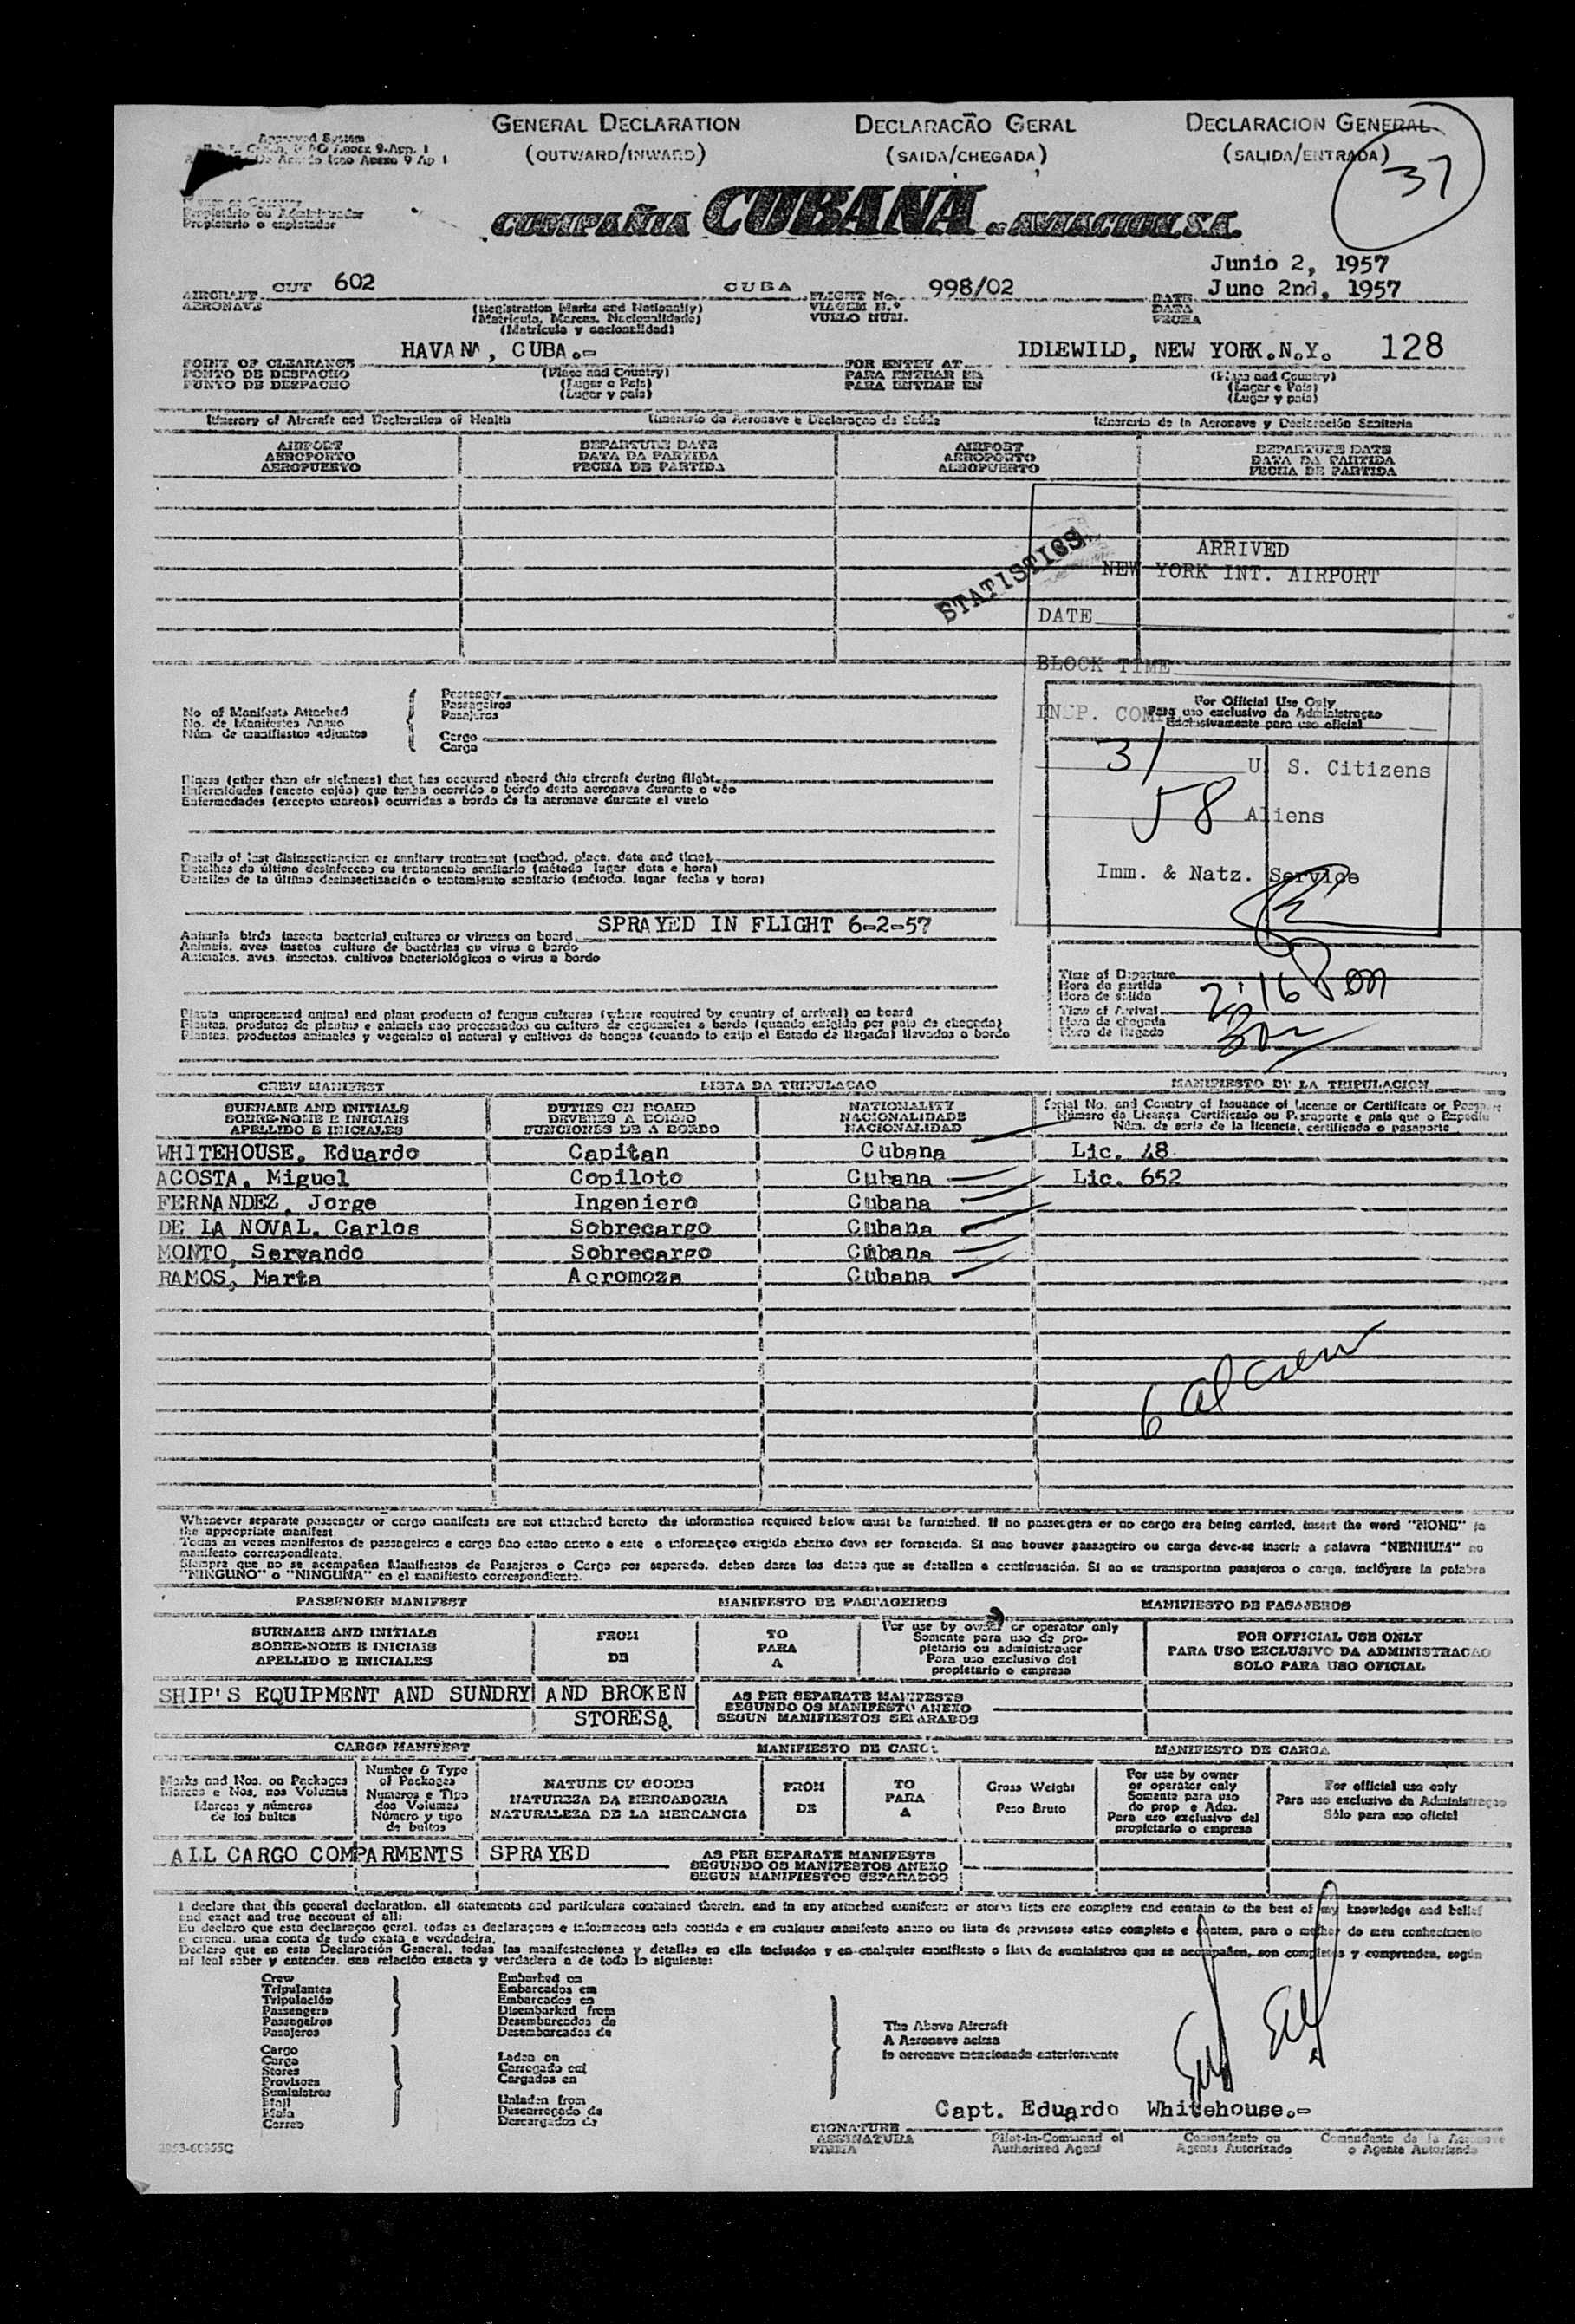 GENERAL DECLARATION
(OUTWARD/INWARD)
DECLARACÃO GERAL
(SAIDA/CHEGADA)
DECLARACION GENERAL
(SALIDA/ENTRADA)
37
Approved System
Propietário ou Administrador
Propietario o explotador
COMPAÑIA CUBANA de AVIACION, S.A.
Junio 2, 1957
AIRCRAFT CUT 602 CUBA FLIGHT No. 998/02 DATE June 2nd, 1957
AERONAVE (Registration Marks and Nationally) VIAGEM N.º DATA
(Matricula, Marcas, Nacionalidade) VUELO NUM. FECHA
(Matricula y nacionalidad)
POINT OF CLEARANCE HAVANA, CUBA.= FOR ENTRY AT IDLEWILD, NEW YORK.N.Y. 128
PONTO DE DESPACHO (Place and Country) PARA ENTRAR EM (Place and Country)
PUNTO DE DESPACHO (Lugar e Pais) PARA ENTRAR EN (Lugar e Pais)
(Lugar y pais) (Lugar y pais)
Itinerary of Aircraft and Declaration of Health Itinerario da Aeronave e Declaraçao de Saúde Itinerario de la Aeronave y Declaración Sanitaria
AIRPORT DEPARTURE DATE AIRPORT DEPARTURE DATE
AEROPORTO DATA DA PARTIDA AEROPORTO DATA DA PARTIDA
AEROPUERTO FECHA DE PARTIDA AEROPUERTO FECHA DE PARTIDA
STATISTICS
ARRIVED
NEW YORK INT. AIRPORT
DATE
BLOCK TIME
INSP. COMP
For Official Use Only
Para uso exclusivo da Administraçao
Exclusivamente para uso oficial
31 U. S. Citizens
58 Aliens
Imm. & Natz. Service
No of Manifests Attached
No. de Manifestos Anexo
Núm. de manifiestos adjuntos
Passenger
Passageiros
Pasajeros
Cargo
Carga
Illness (other than air sickness) that has occurred aboard this aircraft during flight
Enfermidades (exceto enjôo) que tenha ocorrido a bordo desta aeronave durante o vôo
Enfermedades (excepto mareos) ocurridas a bordo de la aeronave durante el vuelo
Details of last disinsectization or sanitary treatment (method, place, date and time)
Detalhes da último desinfeccao ou tratamento sanitario (método lugar data e hora)
Detalles de la última desinsectización o tratamiento sanitario (método, lugar fecha y hora)
SPRAYED IN FLIGHT 6-2-57
Animals birds insects bacterial cultures or viruses on board
Animais, aves insetos cultura de bactérias ou virus a bordo
Animales, aves, insectos, cultivos bacteriológicos o virus a bordo
Time of Departure
Hora da partida
Hora de salida
2:16 Pm
Time of Arrival
Hora de chegada
Hora de llegada
Plants unprocessed animal and plant products of fungus cultures (where required by country of arrival) on board
Plantas, produtos de plantas e animais nao processados ou cultura de cogumelos a bordo (quando exigido por pais de chegada)
Plantas, productos animales y vegetales al natural y cultivos de hongos (cuando lo exija el Estado de llegada) llevados a bordo
CREW MANIFEST LISTA DA TRIPULACAO MANIFIESTO DE LA TRIPULACION
SURNAME AND INITIALS DUTIES ON BOARD NATIONALITY Serial No. and Country of Issuance of License or Certificate or Passport
SOBRE-NOME E INICIAIS DEVERES A BORDO NACIONALIDADE Número da Licença Certificado ou Passaporte e pais que o Expediu
APELLIDO E INICIALES FUNCIONES DE A BORDO NACIONALIDAD Núm. de serie de la licencia, certificado o pasaporte
WHITEHOUSE, Eduardo Capitan Cubana Lic. 48
ACOSTA, Miguel Copiloto Cubana Lic. 652
FERNANDEZ, Jorge Ingeniero Cubana
DE LA NOVAL, Carlos Sobrecargo Cubana
MONTO, Servando Sobrecargo Cubana
RAMOS, Marta Aeromoza Cubana
6 al crew
Whenever separate passenger or cargo manifests are not attached hereto the information required below must be furnished. If no passengers or no cargo are being carried, insert the word "NONE" in
the appropriate manifest
Todas as vezes manifestos de passageiros e carga nao estao anexo a este a informaçao exigida abaixo deva ser fornecida. Si nao houver passageiro ou carga deve-se inserir a palavra "NENHUM" no
manifesto correspondiente.
Siempre que no se acompañen Manifiestos de Pasajeros o Cargo por separado, deben darse los datos que se detallan a continuación. Si no se transportan pasajeros o carga, inclúyase la palabra
"NINGUNO" o "NINGUNA" en el manifiesto correspondiente.
PASSENGER MANIFEST MANIFESTO DE PASSAGEIROS MANIFIESTO DE PASAJEROS
SURNAME AND INITIALS FROM TO For use by owner or operator only FOR OFFICIAL USE ONLY
SOBRE-NOME E INICIAIS DE PARA Somente para uso de pro- PARA USO EXCLUSIVO DA ADMINISTRACAO
APELLIDO E INICIALES A pletario ou administrauer SOLO PARA USO OFICIAL
Para uso exclusivo del
propietario o empresa
SHIP'S EQUIPMENT AND SUNDRY AND BROKEN
STORESA
AS PER SEPARATE MANIFESTS
SEGUNDO OS MANIFESTO ANEXO
SEGUN MANIFIESTOS SEPARADOS
CARGO MANIFEST MANIFIESTO DE CARGA MANIFESTO DE CARGA
Marks and Nos. on Packages
Marcas e Nos. nos Volumes
Marcas y números
de los bultos
Number & Type
of Packages
Numeros e Tipo
dos Volumes
Número y tipo
de bultos
NATURE OF GOODS
NATUREZA DA MERCADORIA
NATURALEZA DE LA MERCANCIA
FROM
DE
TO
PARA
A
Gross Weight
Peso Bruto
For use by owner
or operator only
Somente para uso
do prop e Adm.
Para uso exclusivo del
propietario o empresa
For official use only
Para uso exclusivo da Administraçao
Sólo para uso oficial
ALL CARGO COMPARMENTS SPRAYED
AS PER SEPARATE MANIFESTS
SEGUNDO OS MANIFESTOS ANEXO
SEGUN MANIFIESTOS SEPARADOS
I declare that this general declaration, all statements and particulars contained therein, and in any attached manifests or stores lists are complete and contain to the best of my knowledge and belief
and exact and true account of all:
Eu declaro que esta declaraçao geral, todas as declaraçoes e informacoes nela contida e em cualquer manifesto anexo ou lista de provisoes estao completo e contem, para o melhor do meu conhecimento
e crenca, uma conta de tudo exata e verdadeira.
Declaro que en esta Declaración General, todas las manifestaciones y detalles en ella incluidos y en cualquier manifiesto o lista de suministros que se acompañen, son completos y comprenden, según
mi leal saber y entender, una relación exacta y verdadera a de todo lo siguiente:
Crew
Tripulantes
Tripulación
Passengers
Passageiros
Pasajeros
Embarked on
Embarcados em
Embarcados en
Disembarked from
Desembarcados de
Desembarcados de
Cargo
Carga
Stores
Provisoes
Suministros
Mail
Mala
Correo
Laden on
Carregado em
Cargados en
Unladen from
Descarregado da
Descargados de
The Above Aircraft
A Aeronave acima
la aeronave mencionada anteriormente
Capt. Eduardo Whitehouse.=
SIGNATURE
ASSINATURA
FIRMA
Pilot-in-Command of
Authorized Agent
Comandante ou
Agente Autorizado
Comandante de la Aeronave
o Agente Autorizado